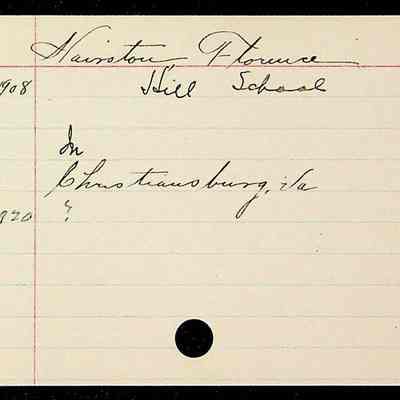 Nairston, Florence
1908 Hill School
In
Christiansburg, Va
1920 ?